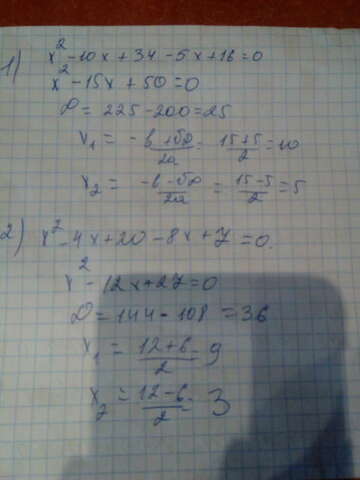 1) x² - 10x + 34 - 5x + 16 = 0
x² - 15x + 50 = 0
D = 225 - 200 = 25
x₁ = -b + √D / 2a = 15+5 / 2 = 10
x₂ = -b - √D / 2a = 15-5 / 2 = 5
2) x² - 4x + 20 - 8x + 7 = 0.
x² - 12x + 27 = 0
D = 144 - 108 = 36
x₁ = 12+6 / 2 = 9
x₂ = 12-6 / 2 = 3